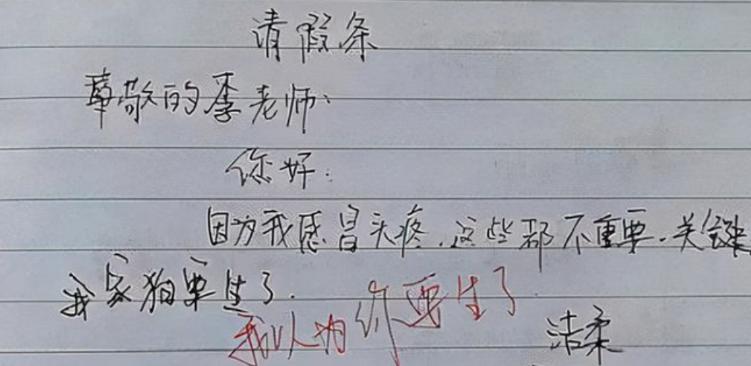 请假条
尊敬的李老师:
您好:
因为我感冒头疼,这些都不重要.关键
我家狗要生了.
我以为你要生了
洁柔